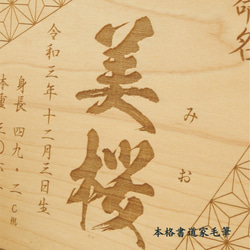 命名
美桜
みお
令和三年十二月三日生
身長 四九.二
本格書道家毛筆